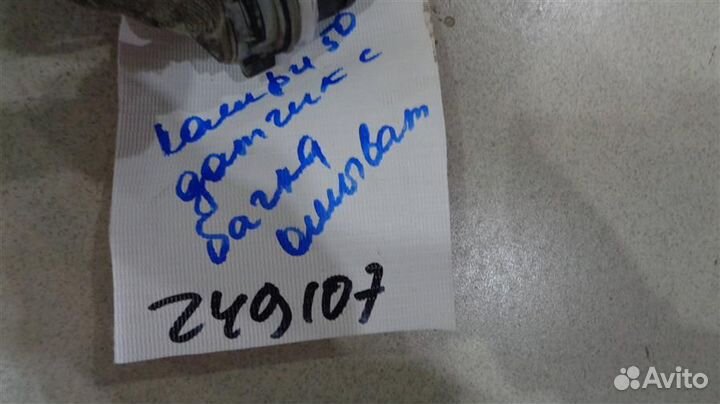 камри 50
датчик с
бачка
омыват
249107
Avito